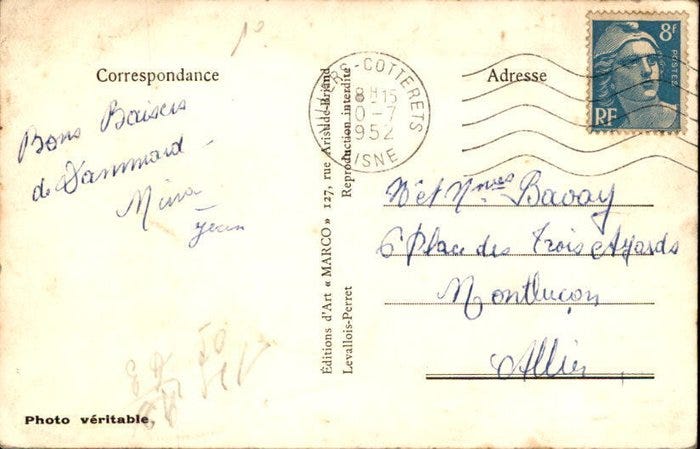 Correspondance
Bons Baisers
de Dammard
Mina
Jean
Photo véritable
Éditions d'Art « MARCO » 127, rue Aristide-Briand
Levallois-Perret
Reproduction interdite
-COTTERETS
8H15
0-7
1952
AISNE
8F
POSTES
RF
Adresse
Mr et Mmes Bavay
6 Place des Trois
Montluçon
Allier